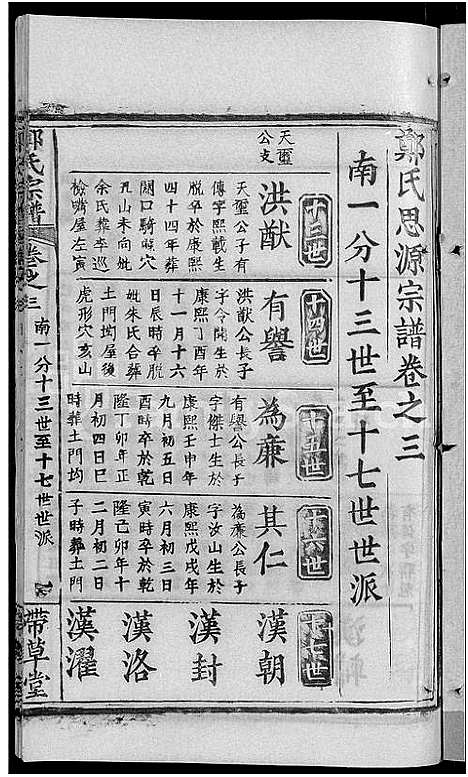 鄭氏思源宗譜卷之三
南一分十三世至十七世世派
十三世
天璽公支
洪猷
天璽公子有
傳字熙載生於
脫卒於康熙
四十四年葬
關口騎曉穴
丑山未向妣
余氏葬李巡
檢嘴屋左寅
十四世
有譽
洪猷公長子
字令聞生於
康熙丁酉年
十一月十六
日辰時卒於
妣朱氏合葬
土門坳屋後
虎形穴亥山
十五世
為廉
有譽公長子
字傑士生於
康熙壬申年
九月初五日
酉時卒於乾
隆丁卯年正
月初四日巳
時葬土門均
十六世
其仁
為廉公長子
字汝山生於
康熙戊戌年
六月初三日
寅時卒於乾
隆己卯年十
二月初二日
子時葬土門
十七世
漢朝
漢封
漢洛
漢濯
鄭氏宗譜
卷之三
南一分十三世至十七世世派
帶草堂